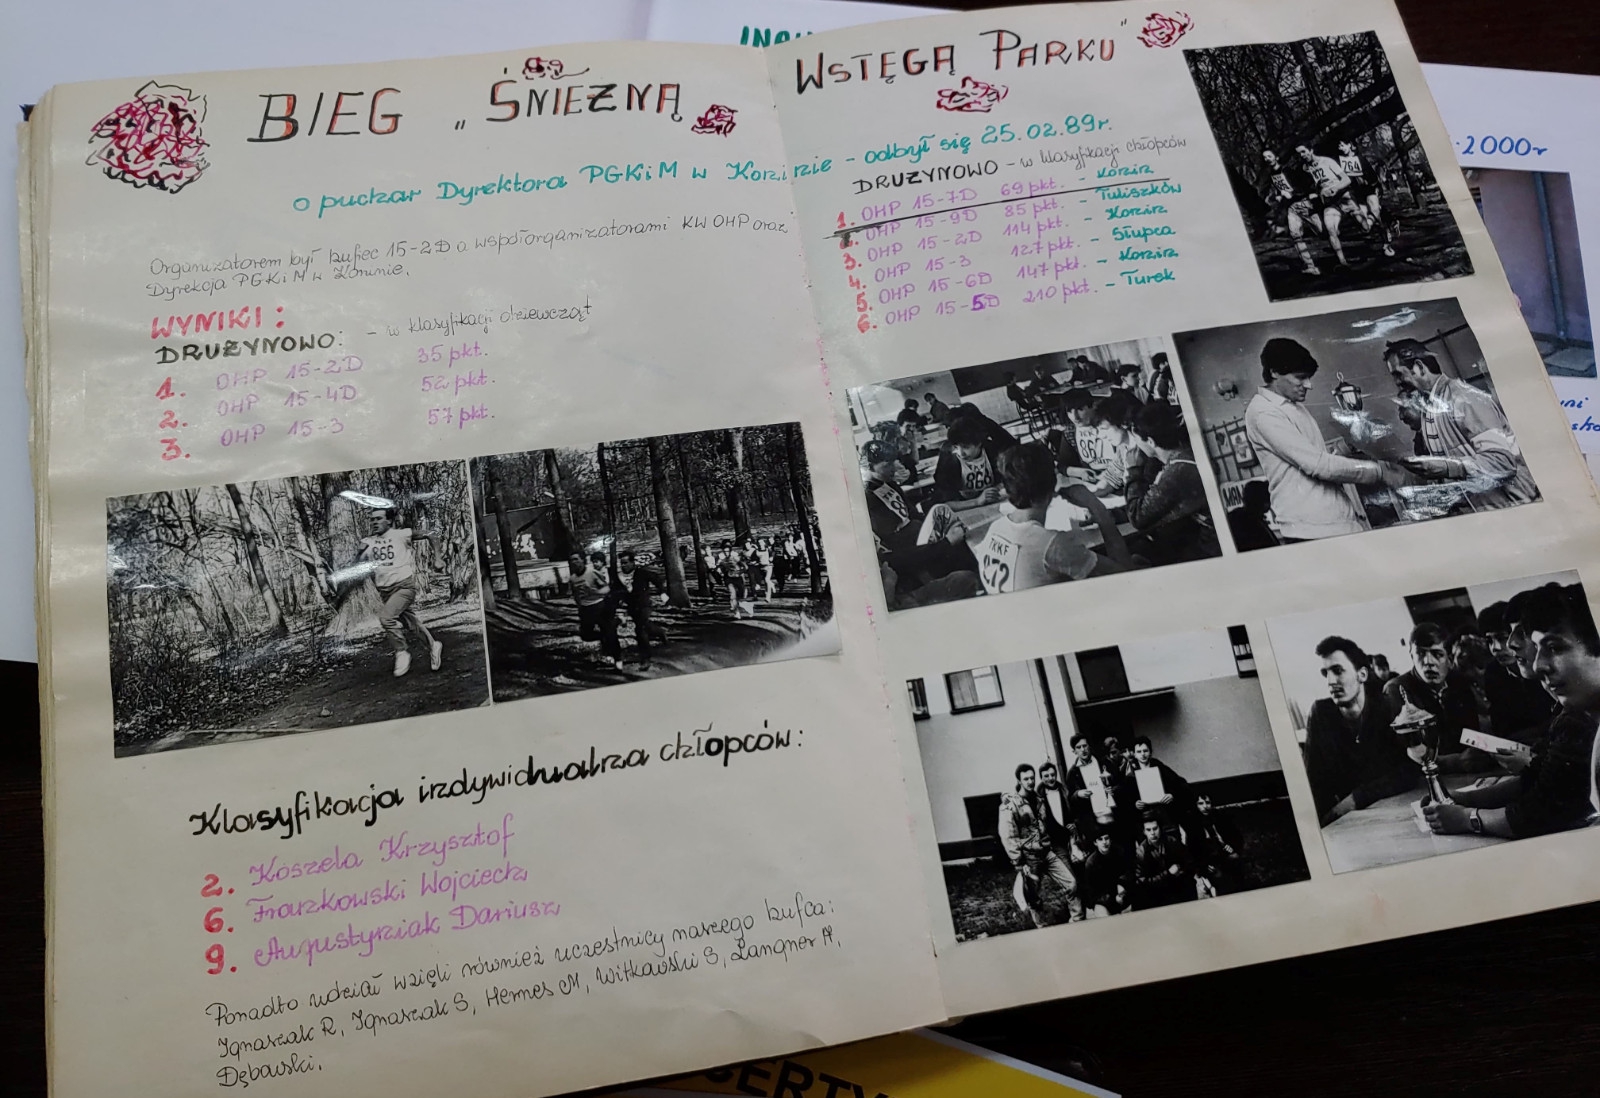 BIEG „ŚNIEŻNĄ WSTĘGĄ PARKU"
o puchar Dyrektora PGKiM w Koninie - odbył się 25.02.89r.
Organizatorem był hufiec 15-2D a współorganizatorami KW OHP oraz
Dyrekcja PGKiM w Koninie.
WYNIKI:
DRUŻYNOWO: - w klasyfikacji dziewcząt
1. OHP 15-2D 35 pkt.
2. OHP 15-4D 52 pkt.
3. OHP 15-3 57 pkt.
866
Klasyfikacja indywidualna chłopców:
2. Koszela Krzysztof
6. Frankowski Wojciech
9. Augustyniak Dariusz
Ponadto udział wzięli również uczestnicy naszego hufca:
Ignaszak R, Ignaszak S, Hermes M, Witkowski S, Langner A,
Dębowski.
DRUŻYNOWO - w klasyfikacji chłopców
1. OHP 15-7D 69 pkt. - Konin
2. OHP 15-9D 85 pkt. - Tuliszków
3. OHP 15-2D 114 pkt. - Konin
4. OHP 15-3 127 pkt. - Słupca
5. OHP 15-6D 147 pkt. - Konin
6. OHP 15-5D 210 pkt. - Turek
764
867
868
TKKF
872
2000r